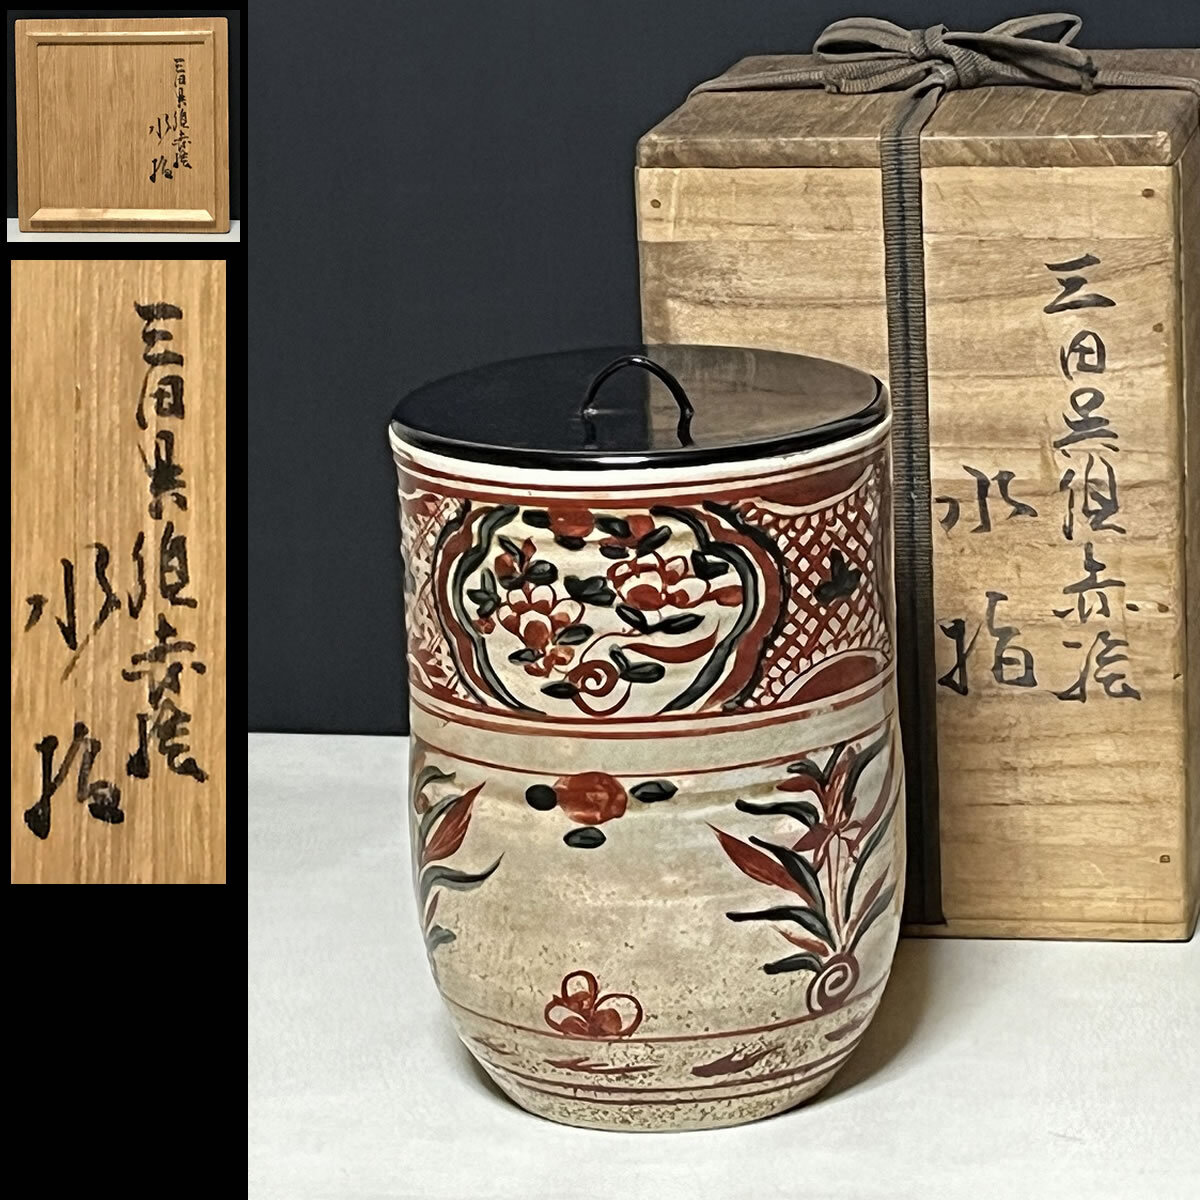 三田呉須赤絵
水指
三田呉須赤絵
水指
三田呉須赤絵
水指